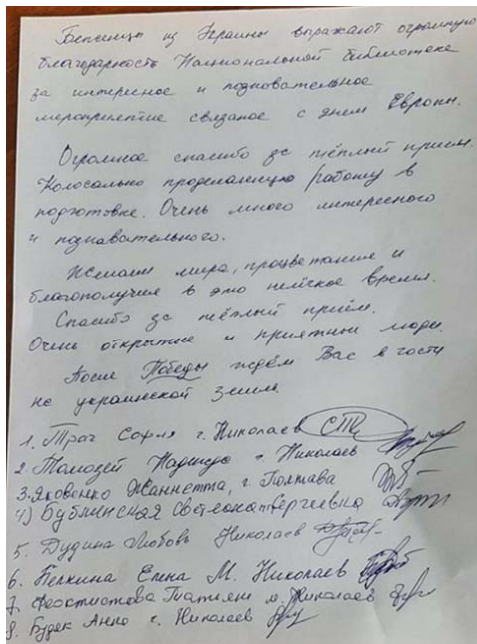 Беженцы из Украины выражают огромную
благодарность Национальной библиотеке
за интересное и познавательное
мероприятие связаное с днем Европы.
Огромное спасибо за тёплый прием.
Колосально проделанную работу в
подготовке. Очень много интересного
и познавательного.
Желаем мира, процветания и
благополучия в это нелёгкое время.
Спасибо за тёплый приём.
Очень открытые и приятные люди.
После Победы ждём Вас в гости
на украинской земле
1. Трач София г. Николаев
2. Томозей Надежда г. Николаев
3. Яковенко Жаннетта, г. Полтава
4) Бублинская Светлана
5. Дудина Любовь Николаев
6. Пелкина Елена М. Николаев
7. Феоктистова Татьяна Николаев
8. Будек Анна г. Николаев